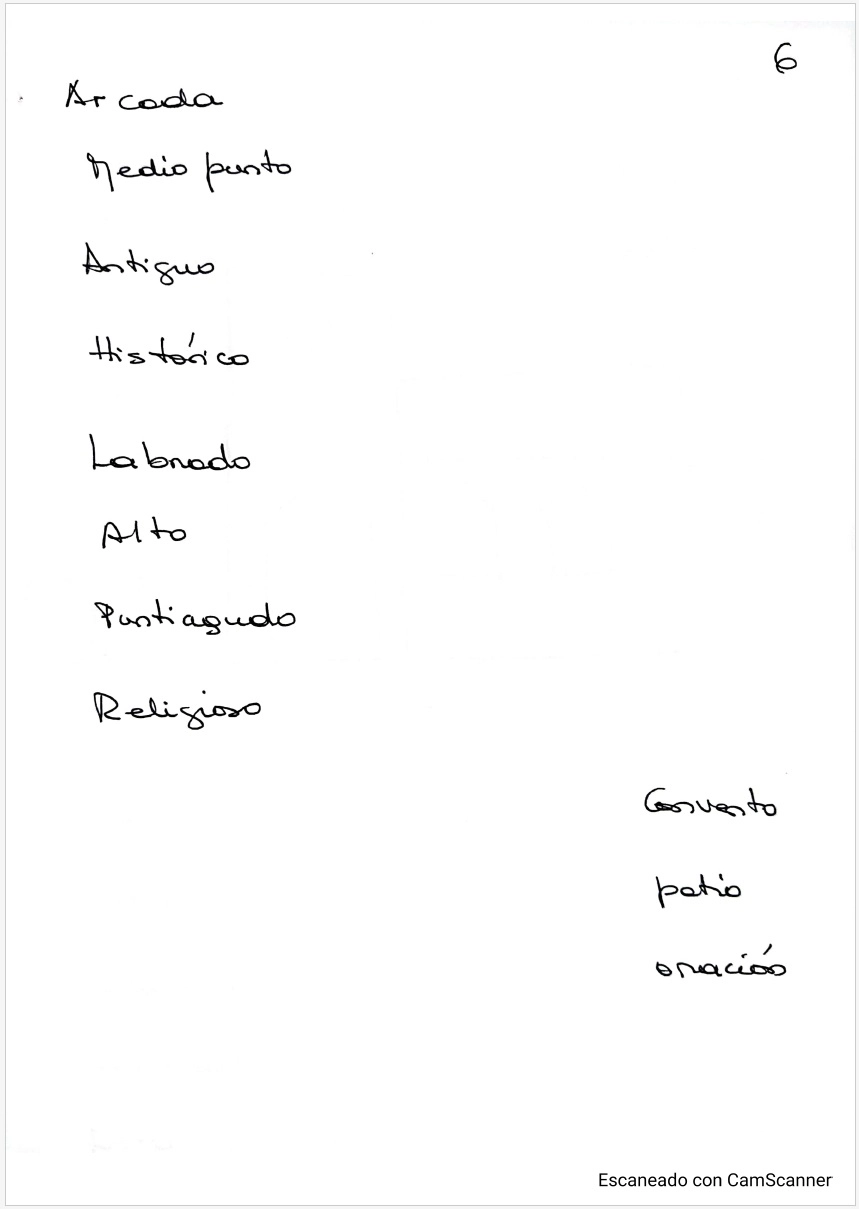 6
Arcada
Medio punto
Antiguo
Histórico
Labrado
Alto
Puntiagudo
Religioso
Convento
patio
oración
Escaneado con CamScanner